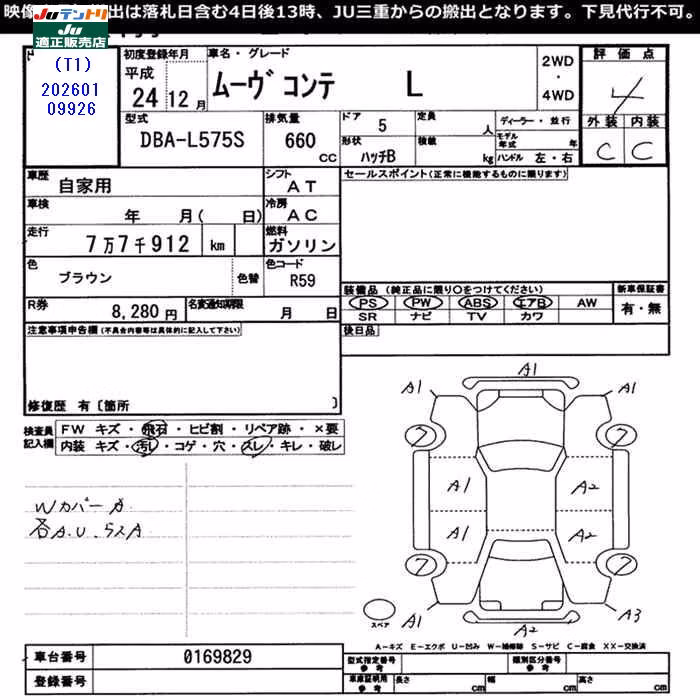 映像 出は落札日含む4日後13時、JU三重からの搬出となります。下見代行不可。
Juテントリ
Ju
適正販売店
(T1)
202601
09926
初度登録年月
平成
24 12 月
車名・グレード
ムーヴ コンテ L
2WD
・
4WD
評価点
4
外装 内装
C C
型式
DBA-L575S
排気量
660 cc
ドア 5
定員 人
形状 ハッチB
積載 kg
ディーラー・並行
モデル年式 年
ハンドル 左・右
車歴 自家用
シフト AT
セールスポイント(正常に機能するものに限ります)
車検 年 月( 日)
冷房 AC
走行 7万7千912 km
燃料 ガソリン
色 ブラウン 色替
色コード R59
装備品 (純正品に限り○をつけてください)
新車保証書
PS PW ABS エアB AW
SR ナビ TV カワ
有・無
R券 8,280 円
名変通知期限 月 日
後日品
注意事項申告欄(不具合内容等は具体的に記入して下さい)
修復歴 有〔箇所 〕
検査員記入欄
FW キズ・飛石・ヒビ割・リペア跡・×要
内装 キズ・汚レ・コゲ・穴・スレ・キレ・破レ
Wカバー
各A.U.
A1
A1 A1
ア ア
A1 A2
A1 A2
ア ア
A1 A2 A3
スペア
A-キズ E-エクボ U-凹み W-補修跡 S-サビ C-腐食 XX-交換済
車台番号 0169829
登録番号
型式指定番号 参考
類別区分番号 参考
車庫証明用 参考
長さ cm 幅 cm 高さ cm